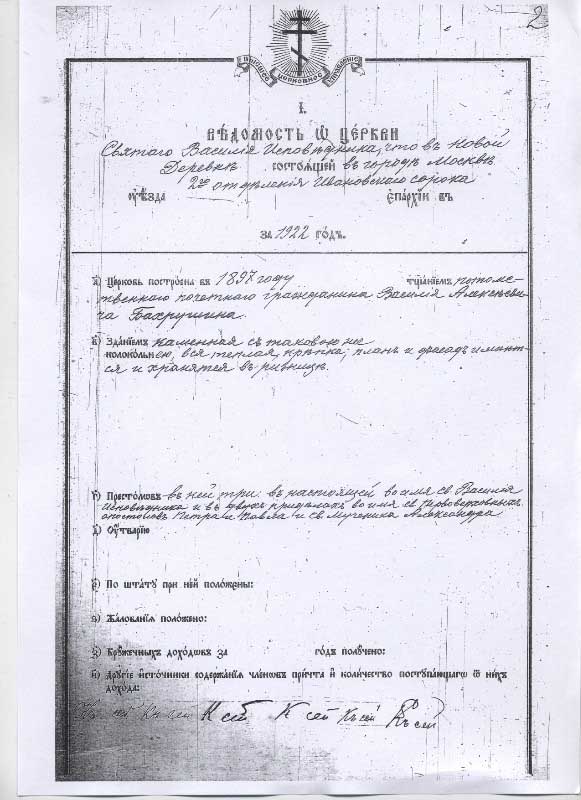 2
І.
ВѢДОМОСТЬ Ѿ ЦЕРКВИ
Святаго Василія Исповѣдника, что въ Новой
Деревнѣ состоящей въ городѣ Москвѣ
2го отдѣленія Ивановскаго сорока
оуѣзда епархїи въ
за 1922 годъ.
а) Церковь построена въ 1897 году тщанїемъ потомс-
твеннаго почетнаго гражданина Василія Алексѣеви-
ча Бахрушина.
в) Зданїемъ каменная съ таковою же
колокольнею, вся теплая, крѣпка; планъ и фасадъ имѣют-
ся и хранятся въ ризницѣ.
г) Престолѡвъ въ ней три: въ настоящей во имя св. Василія
Исповѣдника и въ двухъ придѣлахъ во имя св. Первоверховныхъ
апостоловъ Петра и Павла и св. Мученика Александра
д) Оутварїю
є) По штатꙋ при ней положены:
ѕ) Жалованїя положено:
з) Кружечныхъ доходѡвъ за годъ получено:
и) Другїе источники содержанїя членѡвъ причта и количество поступающагѡ ѿ нихъ
дохода:
Къ сей Къ сей К сей Къ сей Къ сей